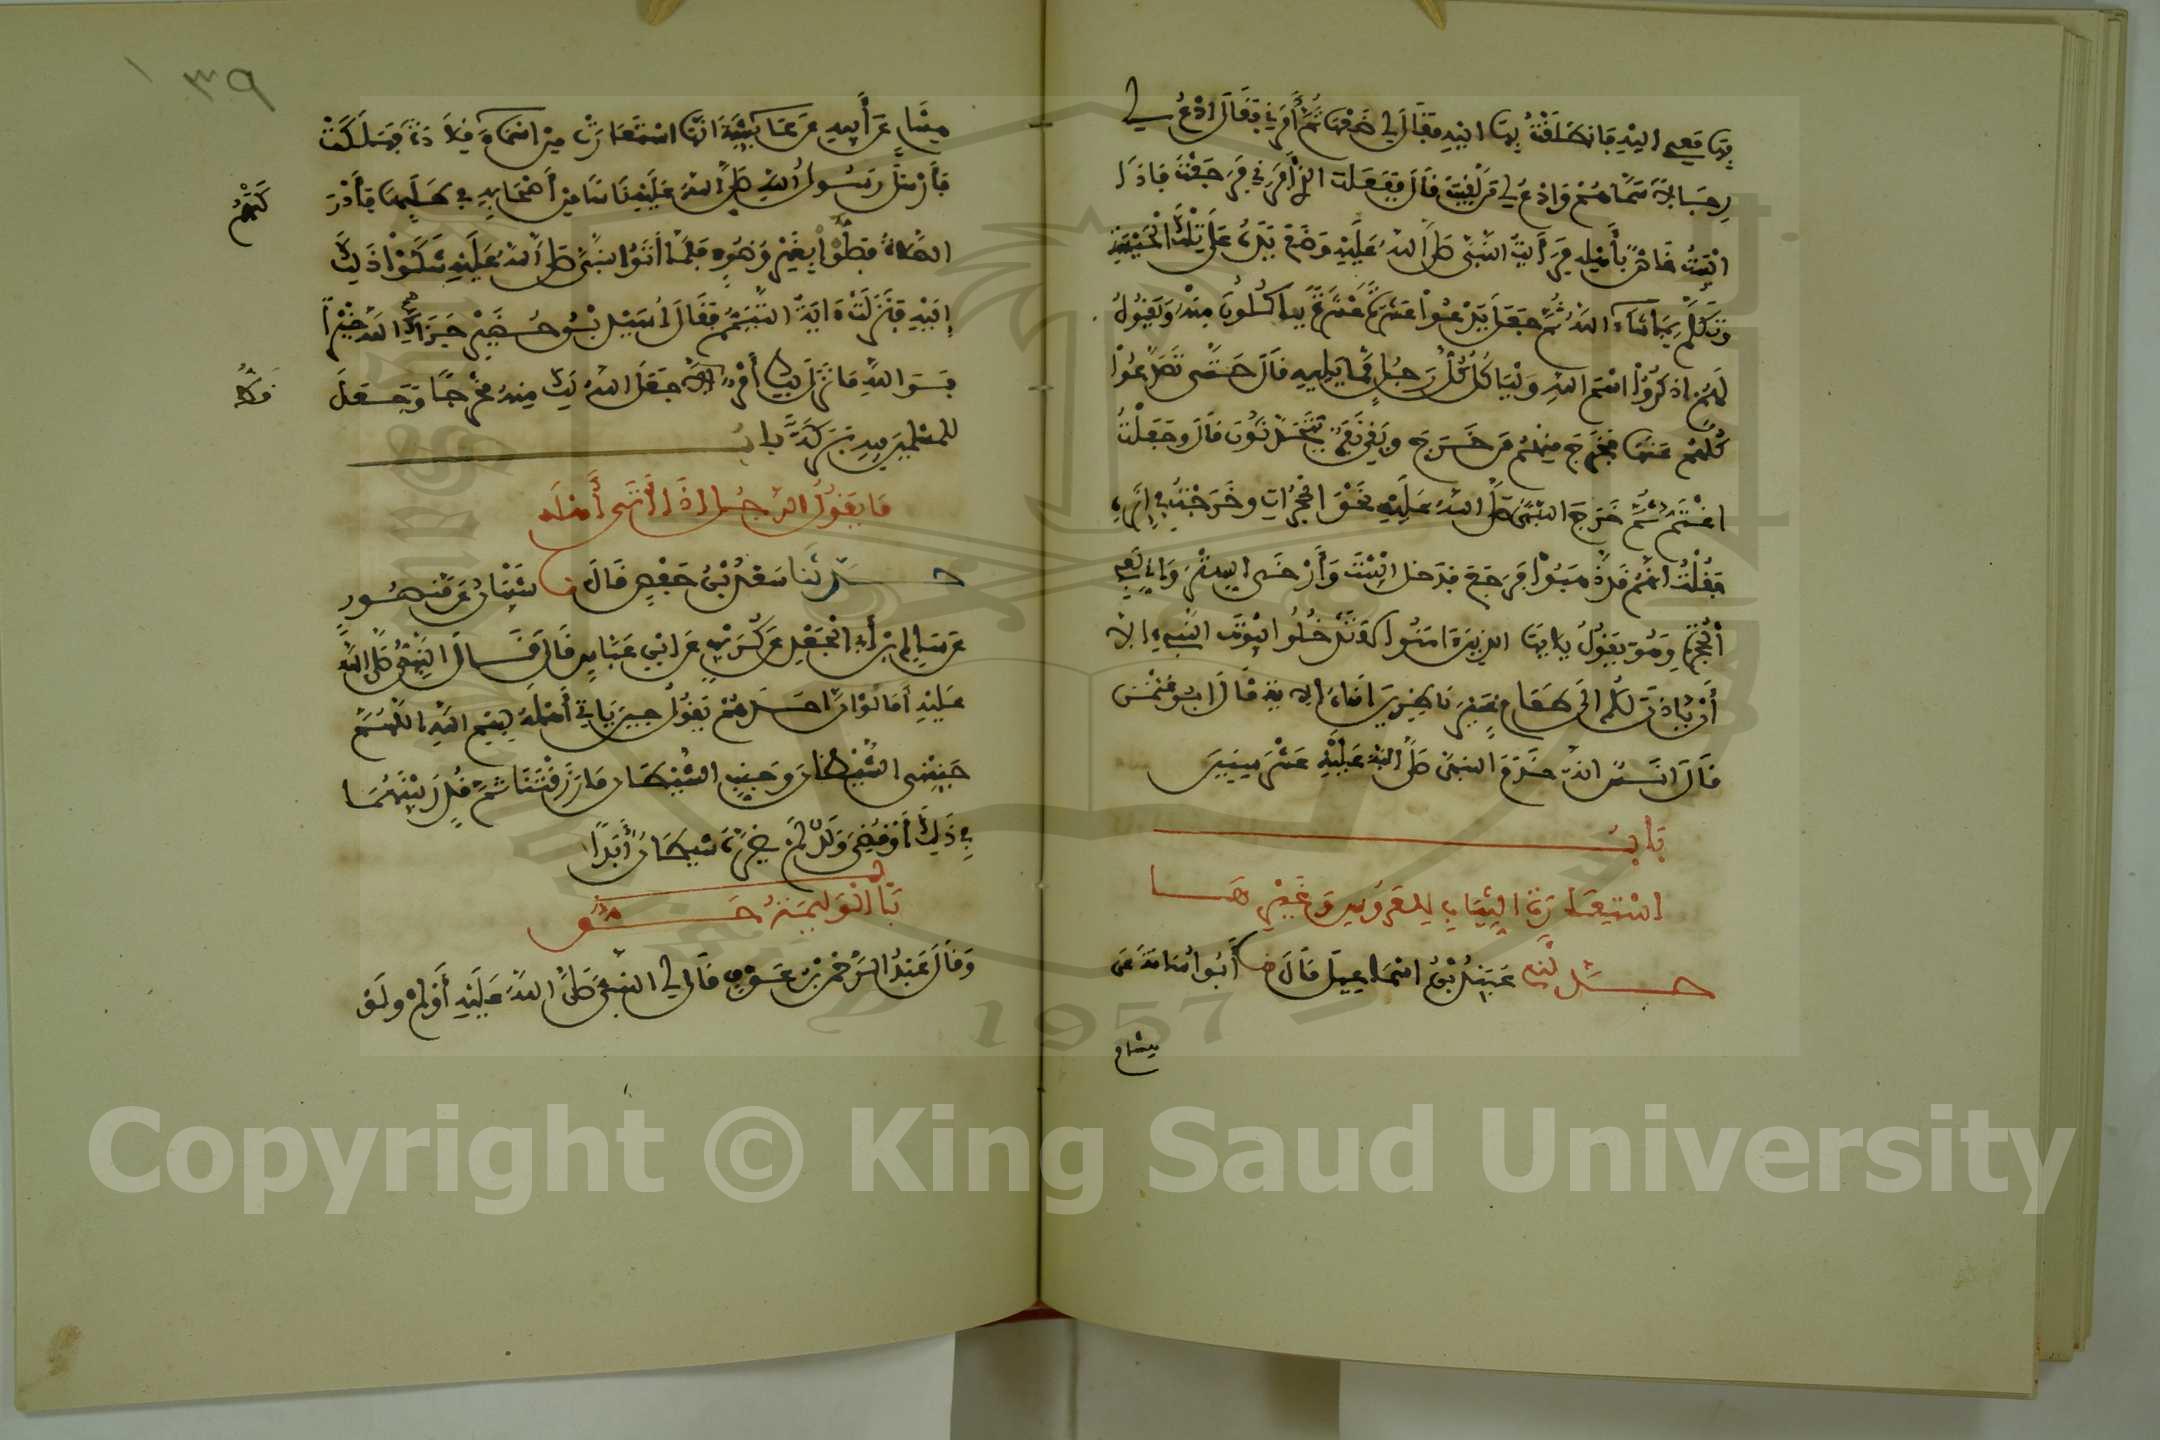 بها معي اليه فانطلقت بها اليه فقال لي ضعها ثم أمرني فقال ادع لي
رجالا سماهم وادع لي من لقيت قال ففعلت الذي أمرني فرجعت فاذا
البيت غاص بأهله فرأيت النبي صلى الله عليه وضع يده على تلك الحيسة
وتكلم بما شاء الله ثم جعل يدعوا عشرة عشرة ياكلون منه ويقول
لهم اذكروا اسم الله ولياكل كل رجل مما يليه قال حتى تصدعوا
كلهم عنها فخرج منهم من خرج وبقي نفر يتحدثون قال وجعلت
اغتم ثم خرج النبي صلى الله عليه نحو الحجرات وخرجت في إثره
فقلت انهم قد ذهبوا فرجع فدخل البيت وأرخى الستر واني لفي
الحجرة وهو يقول يا ايها الذين ءامنوا لا تدخلوا بيوت النبيء الا
أن يوذن لكم الى طعام غير ناظرين اناه الاية قال ابو عثمن
قال انس انه خدم النبي صلى الله عليه عشر سنين
باب
استعارة الثياب للعروس وغيرها
حدثني عبيد بن اسماعيل قال نا أبوا اسامة عن
هشام
١٣٩
هشام عن أبيه عن عايشة انها استعارت من اسماء قلادة فهلكت
فأرسل رسول الله صلى الله عليه ناسا من أصحابه في طلبها فأدركتهم
الصلاة فصلوا بغير وضوء فلما أتوا النبي صلى الله عليه شكوا ذلك
إليه فنزلت ءاية التيمم فقال اسيد بن حضير جزاك الله خيرا
فوالله ما نزل بك أمر قط الا جعل الله لك منه مخرجا وجعل
للمسلمين فيه بركة باب
ما يقول الرجل اذا أتى أهله
حدثنا سعد بن حفص قال نا شيبان عن منصور
عن سالم بن أبي الجعد عن كريب عن ابن عباس قال قال النبي صلى الله
عليه أما لو ان احدهم يقول حين ياتي أهله بسم الله اللهم
جنبني الشيطان وجنب الشيطان ما رزقتنا ثم قدر بينهما
في ذلك أو قضي ولد لم يضره شيطان أبدا
باب الوليمة حق
وقال عبد الرحمن بن عوف قال لي النبي صلى الله عليه أولم ولو